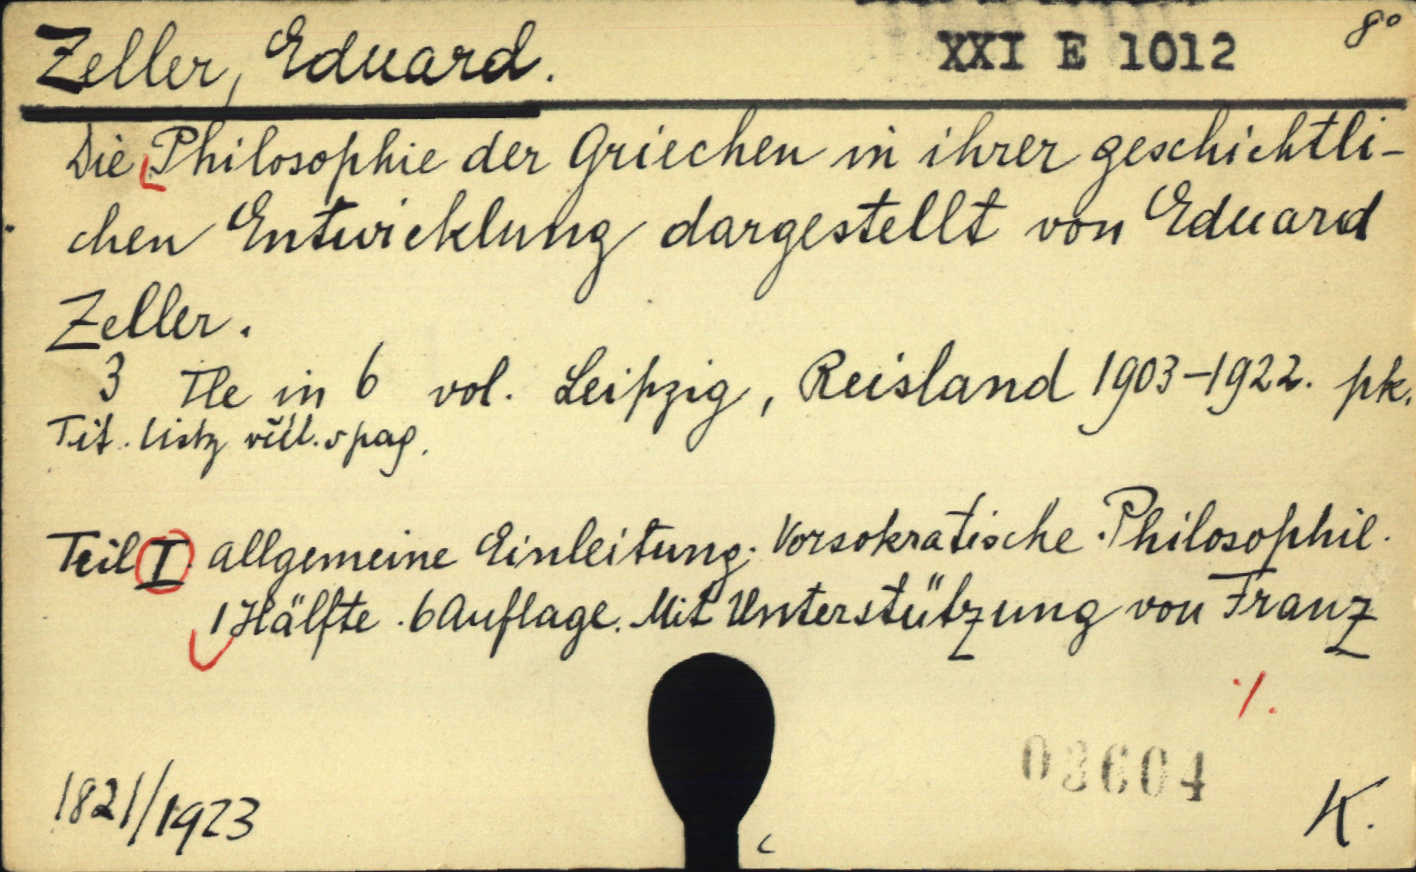 Zeller, Eduard. XXI E 1012 8°
Die Philosophie der Griechen in ihrer geschichtli-
chen Entwicklung dargestellt von Eduard
Zeller.
3 Tle in 6 vol. Leipzig, Reisland 1903-1922. pk.
Tit. listy
Teil I. allgemeine Einleitung. Vorsokratische Philosophil.
1 Hälfte. 6 Auflage. Mit Unterstützung von Franz
./.
03604
1821/1923 K.